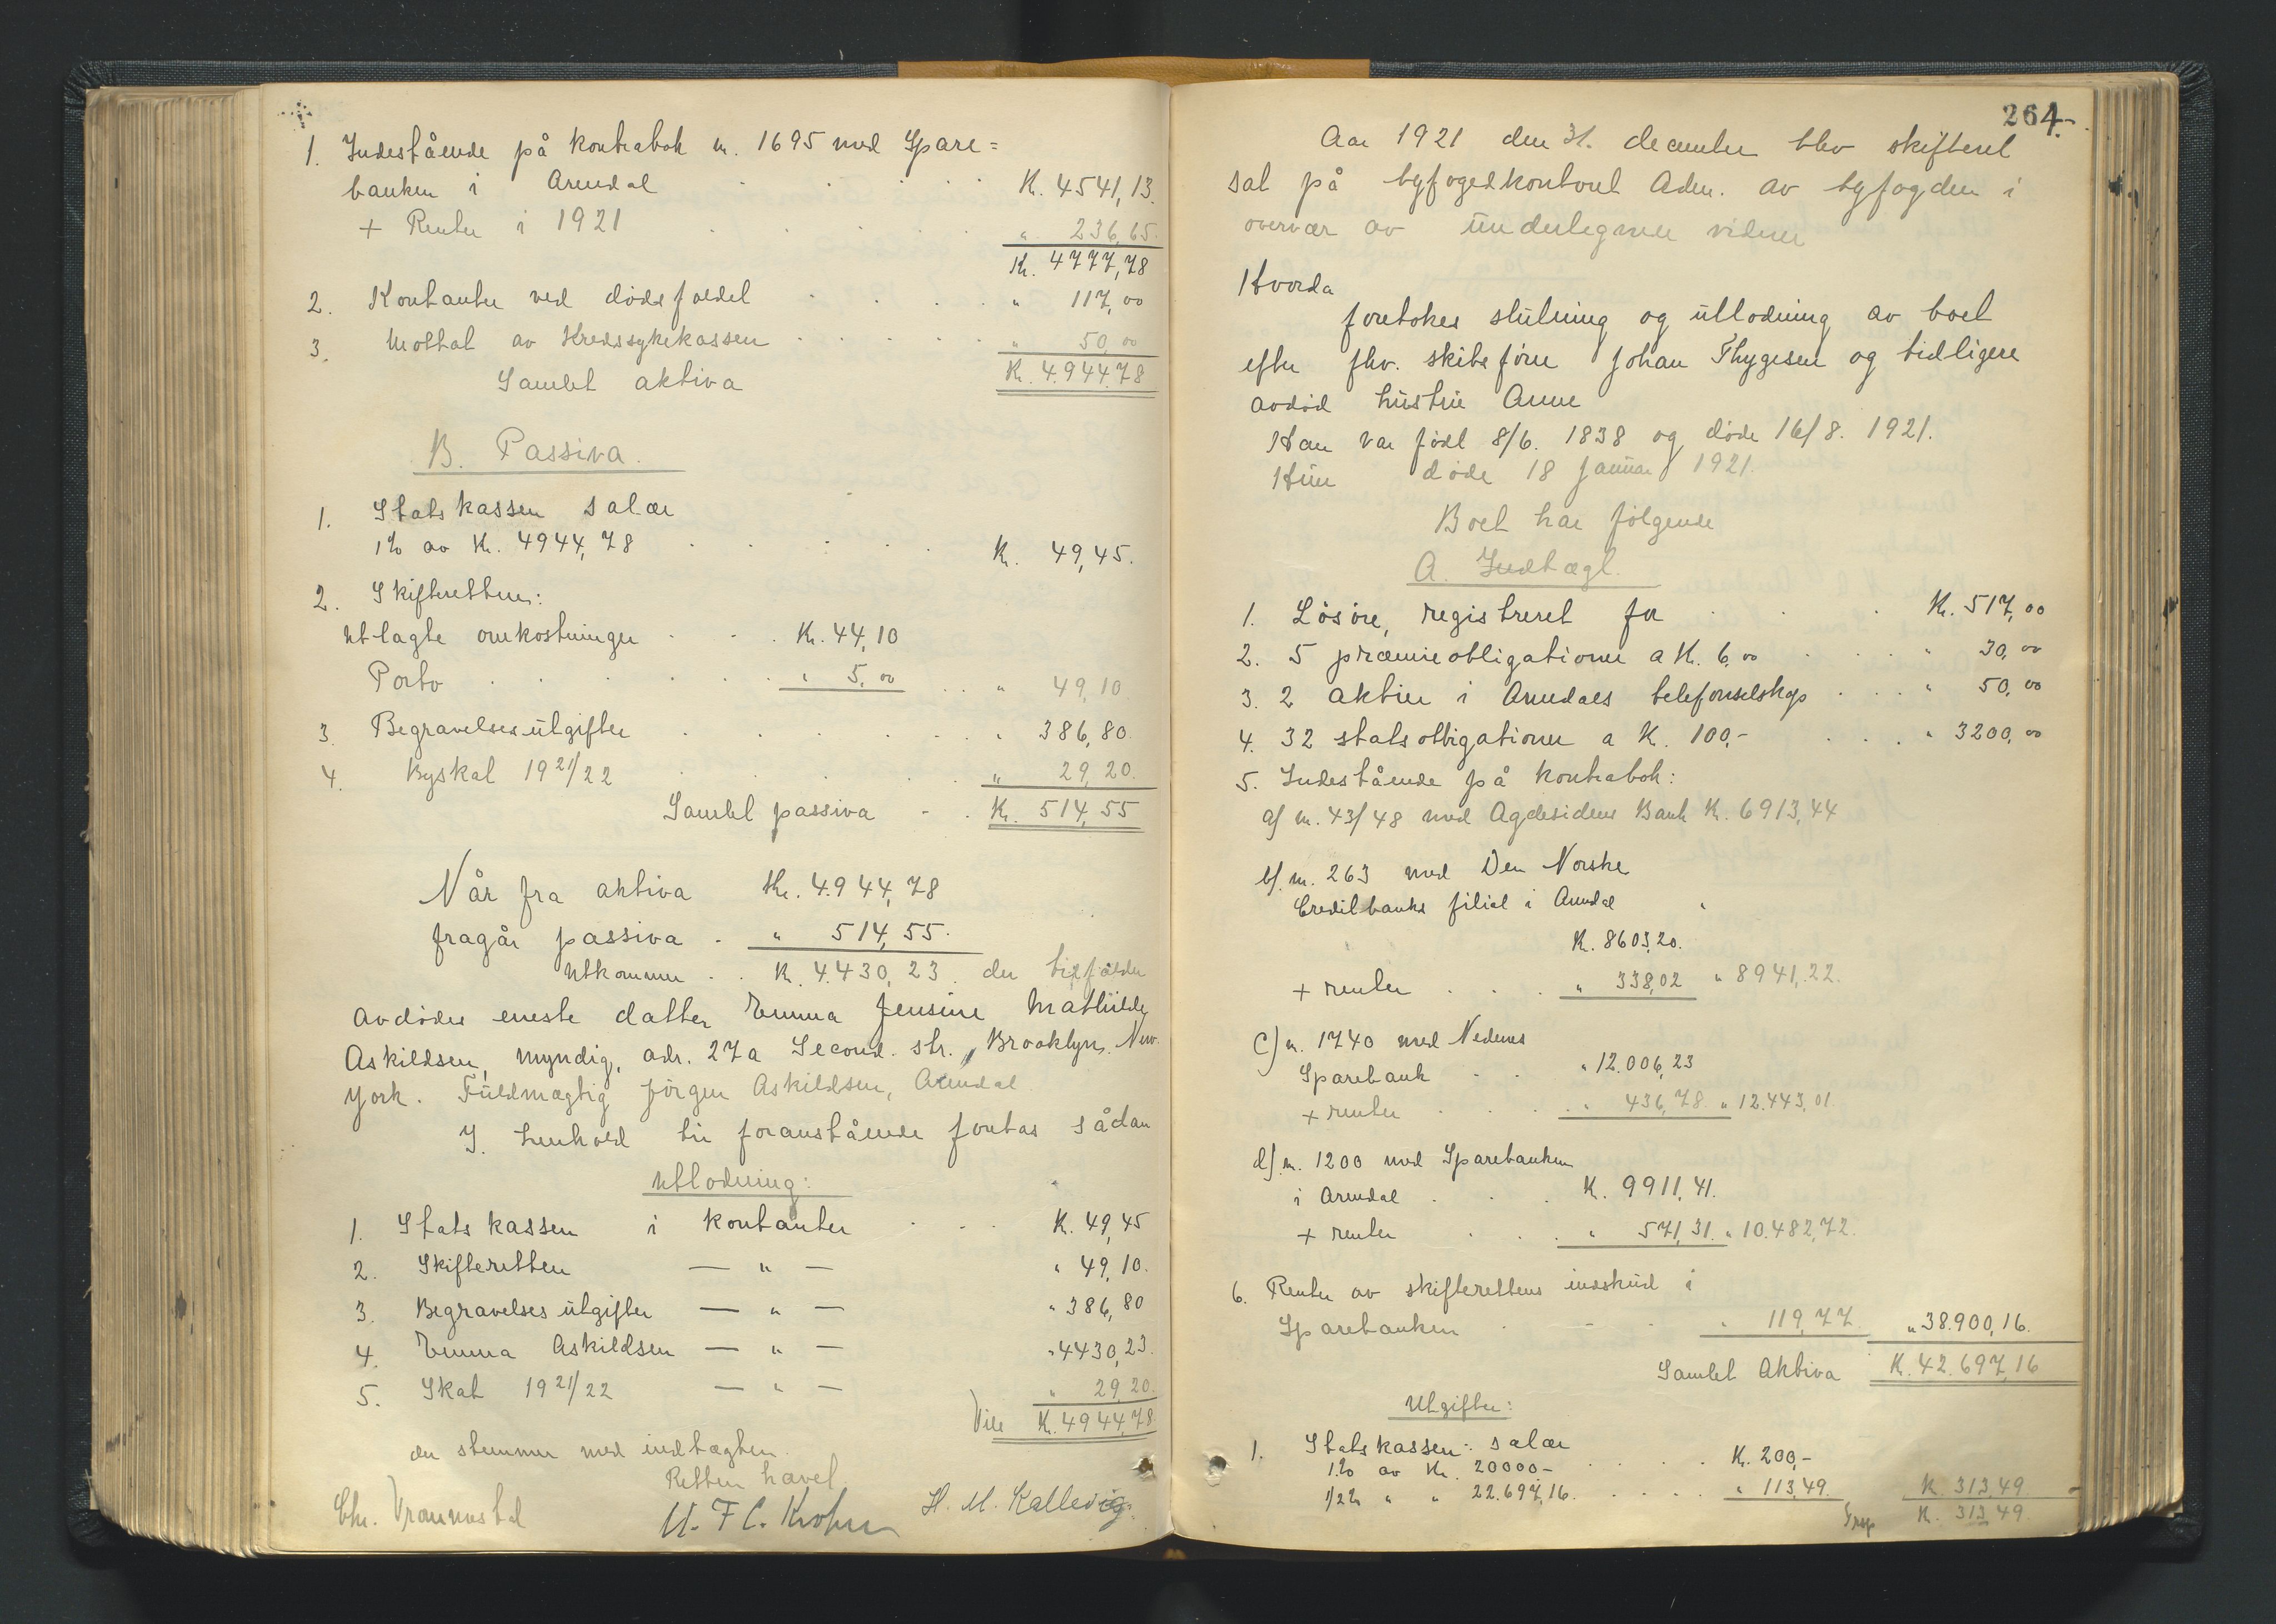 1. Indestående på kontrabok nr. 1695 med Spare=
banken i Arendal . . . . . Kr. 4541,13.
+ Renter i 1921 . . . . . " 236,65.
Kr. 4777,78
2. Kontanter ved dødsfaldet . . . . " 117,00
3. Mottat av Kredssykekassen . . . . . " 50,00
Samlet aktiva Kr. 4.944,78
B. Passiva.
1. Statskassen salær
1% av Kr. 4944,78 . . . . . Kr. 49,45.
2. Skifteretten:
Utlagte omkostninger . . . Kr. 44,10
Porto . . . . . . " 5,00 . . " 49,10.
3. Begravelsesutgifter . . . . . . " 386,80.
4. Byskat 1921/22 . . . . . " 29,20.
Samlet passiva - . Kr. 514,55
Når fra aktiva Kr. 4.944,78
fragår passiva . " 514,55.
Utkommer . . Kr. 4.430,23. der tilfalder
avdødes eneste datter Emma Jensine Mathilde
Askildsen, myndig, adr. 27a Second. str., Brooklyn. New.
York. Fuldmægtig Jørgen Askildsen, Arendal.
I henhold til foranstående foretas sådan
Utlodning:
1. Statskassen i kontanter . . . K. 49,45
2. Skifteretten — " — " 49,10.
3. Begravelsesutgifter — " — " 386,80
4. Emma Askildsen — " — " 4430,23.
5. Skat 1921/22 — " — " 29,20.
K. 4944,78
der stemmer med indtægten.
Retten hævet.
Chr. H. M. Kallevig
264.
Aar 1921 den 31. december blev skifteret
sat på byfogedkontoret Aden. av byfogden i
overvær av undertegnede vidner
Hvorda
foretokes slutning og utlodning av boet
efter fhv. skibsfører Johan Thygesen og tidligere
avdød hustru Anne
Han var født 8/6. 1838 og døde 16/8. 1921.
Hun døde 18 Januar 1921.
Boet har følgende
A. Indtægt.
1. Løsøre, registreret for . . . Kr. 517,00
2. 5 præmieobligationer a K. 6,00 . . . " 30,00
3. 2 aktier i Arendals telefonselskap . . . " 50,00
4. 32 statsobligationer a K. 100,- . . . . " 3200,00
5. Indestående på kontrabok:
a/ nr. 43/48 med Agdesidens Bank K. 6913,44
b/. nr. 263 med Den Norske
Creditbanks filial i Arendal
K. 8603,20.
+ renter . . . " 338,02 " 8941,22.
c) nr. 1740 med Nedenes
Sparebank . . " 12.006,23
+ renter . . . . " 436,78. " 12.443,01.
d/. nr. 1200 med Sparebanken
i Arendal . . . K. 9911,41.
+ renter . . . " 571,31. " 10.482,72.
6. Renter av skifterettens indskud i
Sparebanken . - . " 119,77. " 38.900,16.
Samlet Aktiva K. 42.697,16
Utgifter:
1. Statskassen: salær
1% av Kr. 20000- . . . . . K. 200,-
1/2% " " 22.697,16. . . . . " 113,49. K. 313,49.
Trsp K. 313,49.